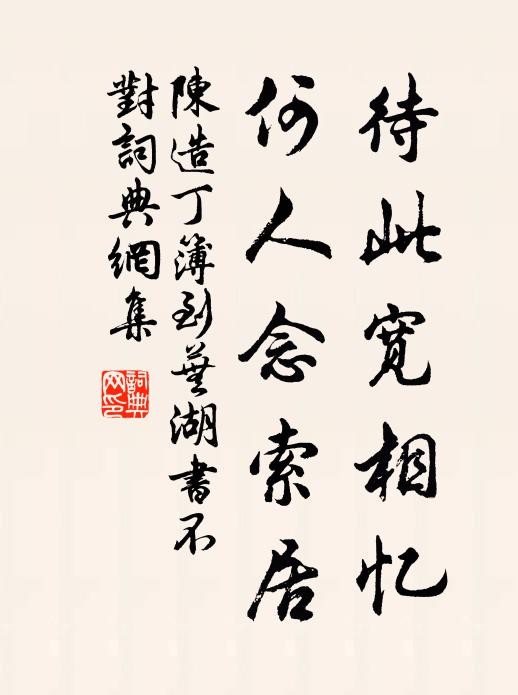 待此宽相忆
何人念索居
陳造丁簿到蕪湖書不
對詞典網集
詞典網印